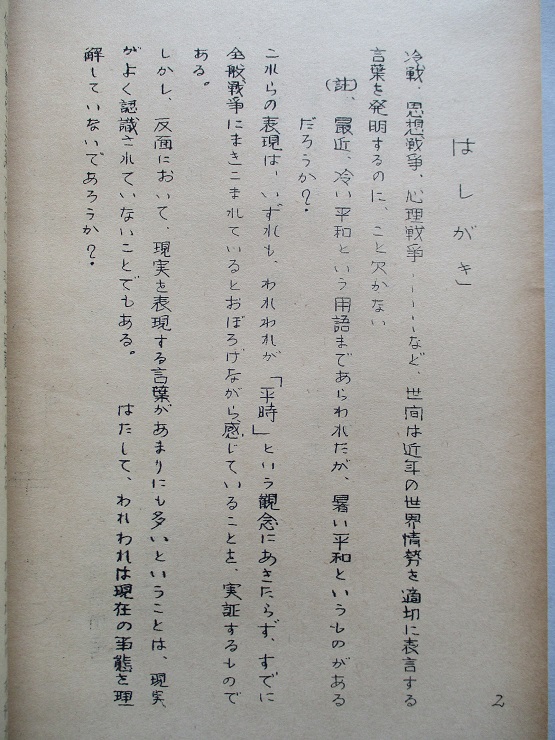 はしがき」
冷戦、思想戦争、心理戦争‥‥‥など、世间は近年の世界情勢を適切に表言する
言葉を発明するのに、こと欠かない
(註)、最近、冷い平和という用語まであらわれたが、暑い平和というものがある
だろうか？
これらの表現は、いずれも、われわれが「平時」という観念にあきたらず、すでに
全般戦争にまきこまれているとおぼろげながら感じていることを、実証するもので
ある。
しかし、反面において、現実を表現する言葉があまりにも多いということは、現実
がよく認識されていないことでもある。　はたして、われわれは現在の事態を理
解していないであろうか？
2